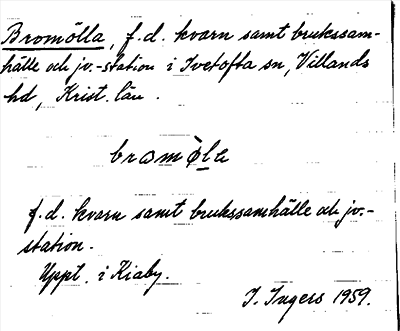 Bromölla, f.d. kvarn samt brukssam-
hälle och jv.-station i Ivetofta sn, Villands
hd, Krist. län.
bromö̀la
f.d. kvarn samt brukssamhälle och jv.-
station.
Uppt. i Kiaby.
I. Ingers 1959.